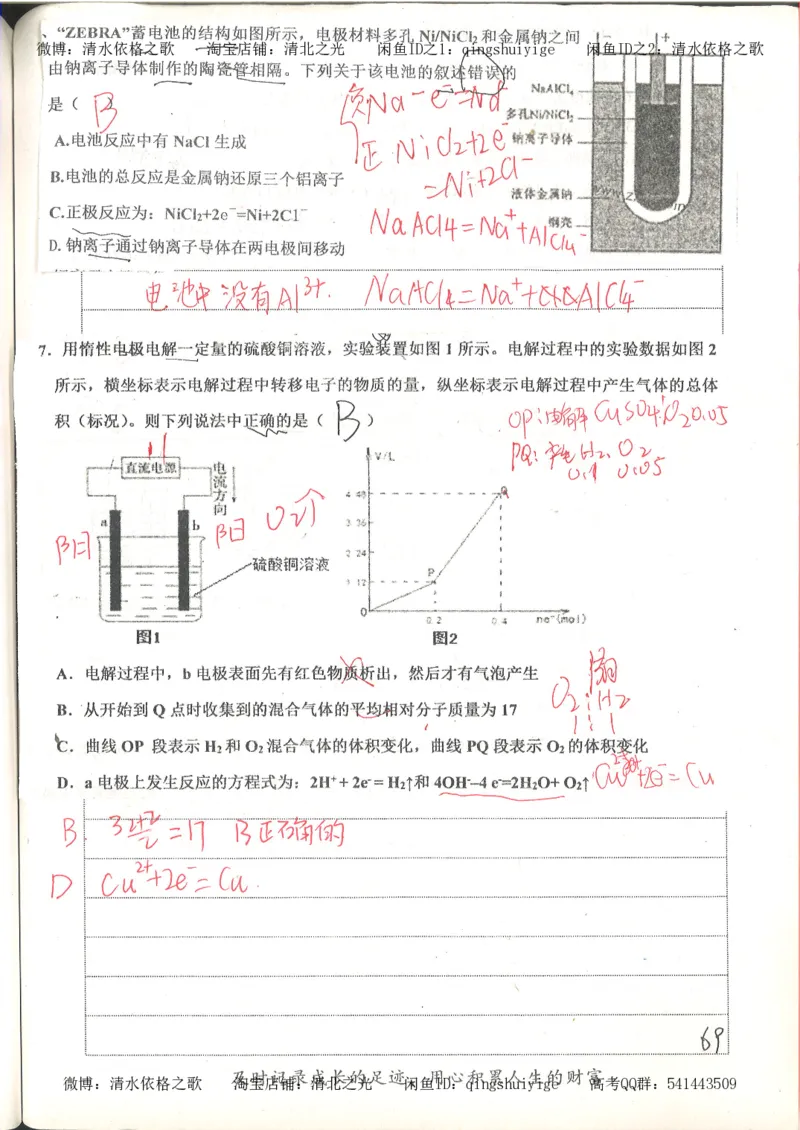 、“ZEBRA”蓄电池的结构如图所示，电极材料多孔 Ni/NiCl₂ 和金属钠之间
微博：清水依格之歌 淘宝店铺：清北之光 闲鱼ID之1：qingshuiyige 闲鱼ID之2：清水依格之歌
由钠离子导体制作的陶瓷管相隔。下列关于该电池的叙述错误的
是（ B ）
A.电池反应中有 NaCl 生成
B.电池的总反应是金属钠还原三个铝离子
C.正极反应为：NiCl₂+2e⁻=Ni+2Cl⁻
D. 钠离子通过钠离子导体在两电极间移动
负Na-e⁻=Na
正 NiCl2+2e⁻
=Ni+2Cl⁻
NaAlCl4=Na⁺+AlCl4⁻
- +
NaAlCl₄
多孔Ni/NiCl₂
钠离子导体
液体金属钠
钢壳
电池中没有Al³⁺. NaAlCl4=Na⁺+AlCl4⁻
7．用惰性电极电解一定量的硫酸铜溶液，实验装置如图 1 所示。电解过程中的实验数据如图 2
所示，横坐标表示电解过程中转移电子的物质的量，纵坐标表示电解过程中产生气体的总体
积（标况）。则下列说法中正确的是（ B ）
OP：电解CuSO4：O2 0.05
PQ：产生H2、O2
0.1 0.05
直流电源
电流方向
a b
阳 阳 O2个
硫酸铜溶液
图1
V/L
4 48
3 36
2 24
1 12
0
P
Q
0.2 0.4 ne⁻(mol)
图2
A．电解过程中，b 电极表面先有红色物质析出，然后才有气泡产生
B．从开始到 Q 点时收集到的混合气体的平均相对分子质量为 17
O2：H2
1：1
C．曲线 OP 段表示 H₂ 和 O₂ 混合气体的体积变化，曲线 PQ 段表示 O₂ 的体积变化
D．a 电极上发生反应的方程式为：2H⁺ + 2e⁻ = H₂↑和 4OH⁻–4 e⁻=2H₂O+ O₂↑
Cu²⁺+2e⁻=Cu
B 32+2/2=17 B正确的
D Cu²⁺+2e⁻=Cu.
69
及时记录成长的足迹 用心积累人生的财富
微博：清水依格之歌 淘宝店铺：清北之光 闲鱼ID：qingshuiyige 高考QQ群：541443509